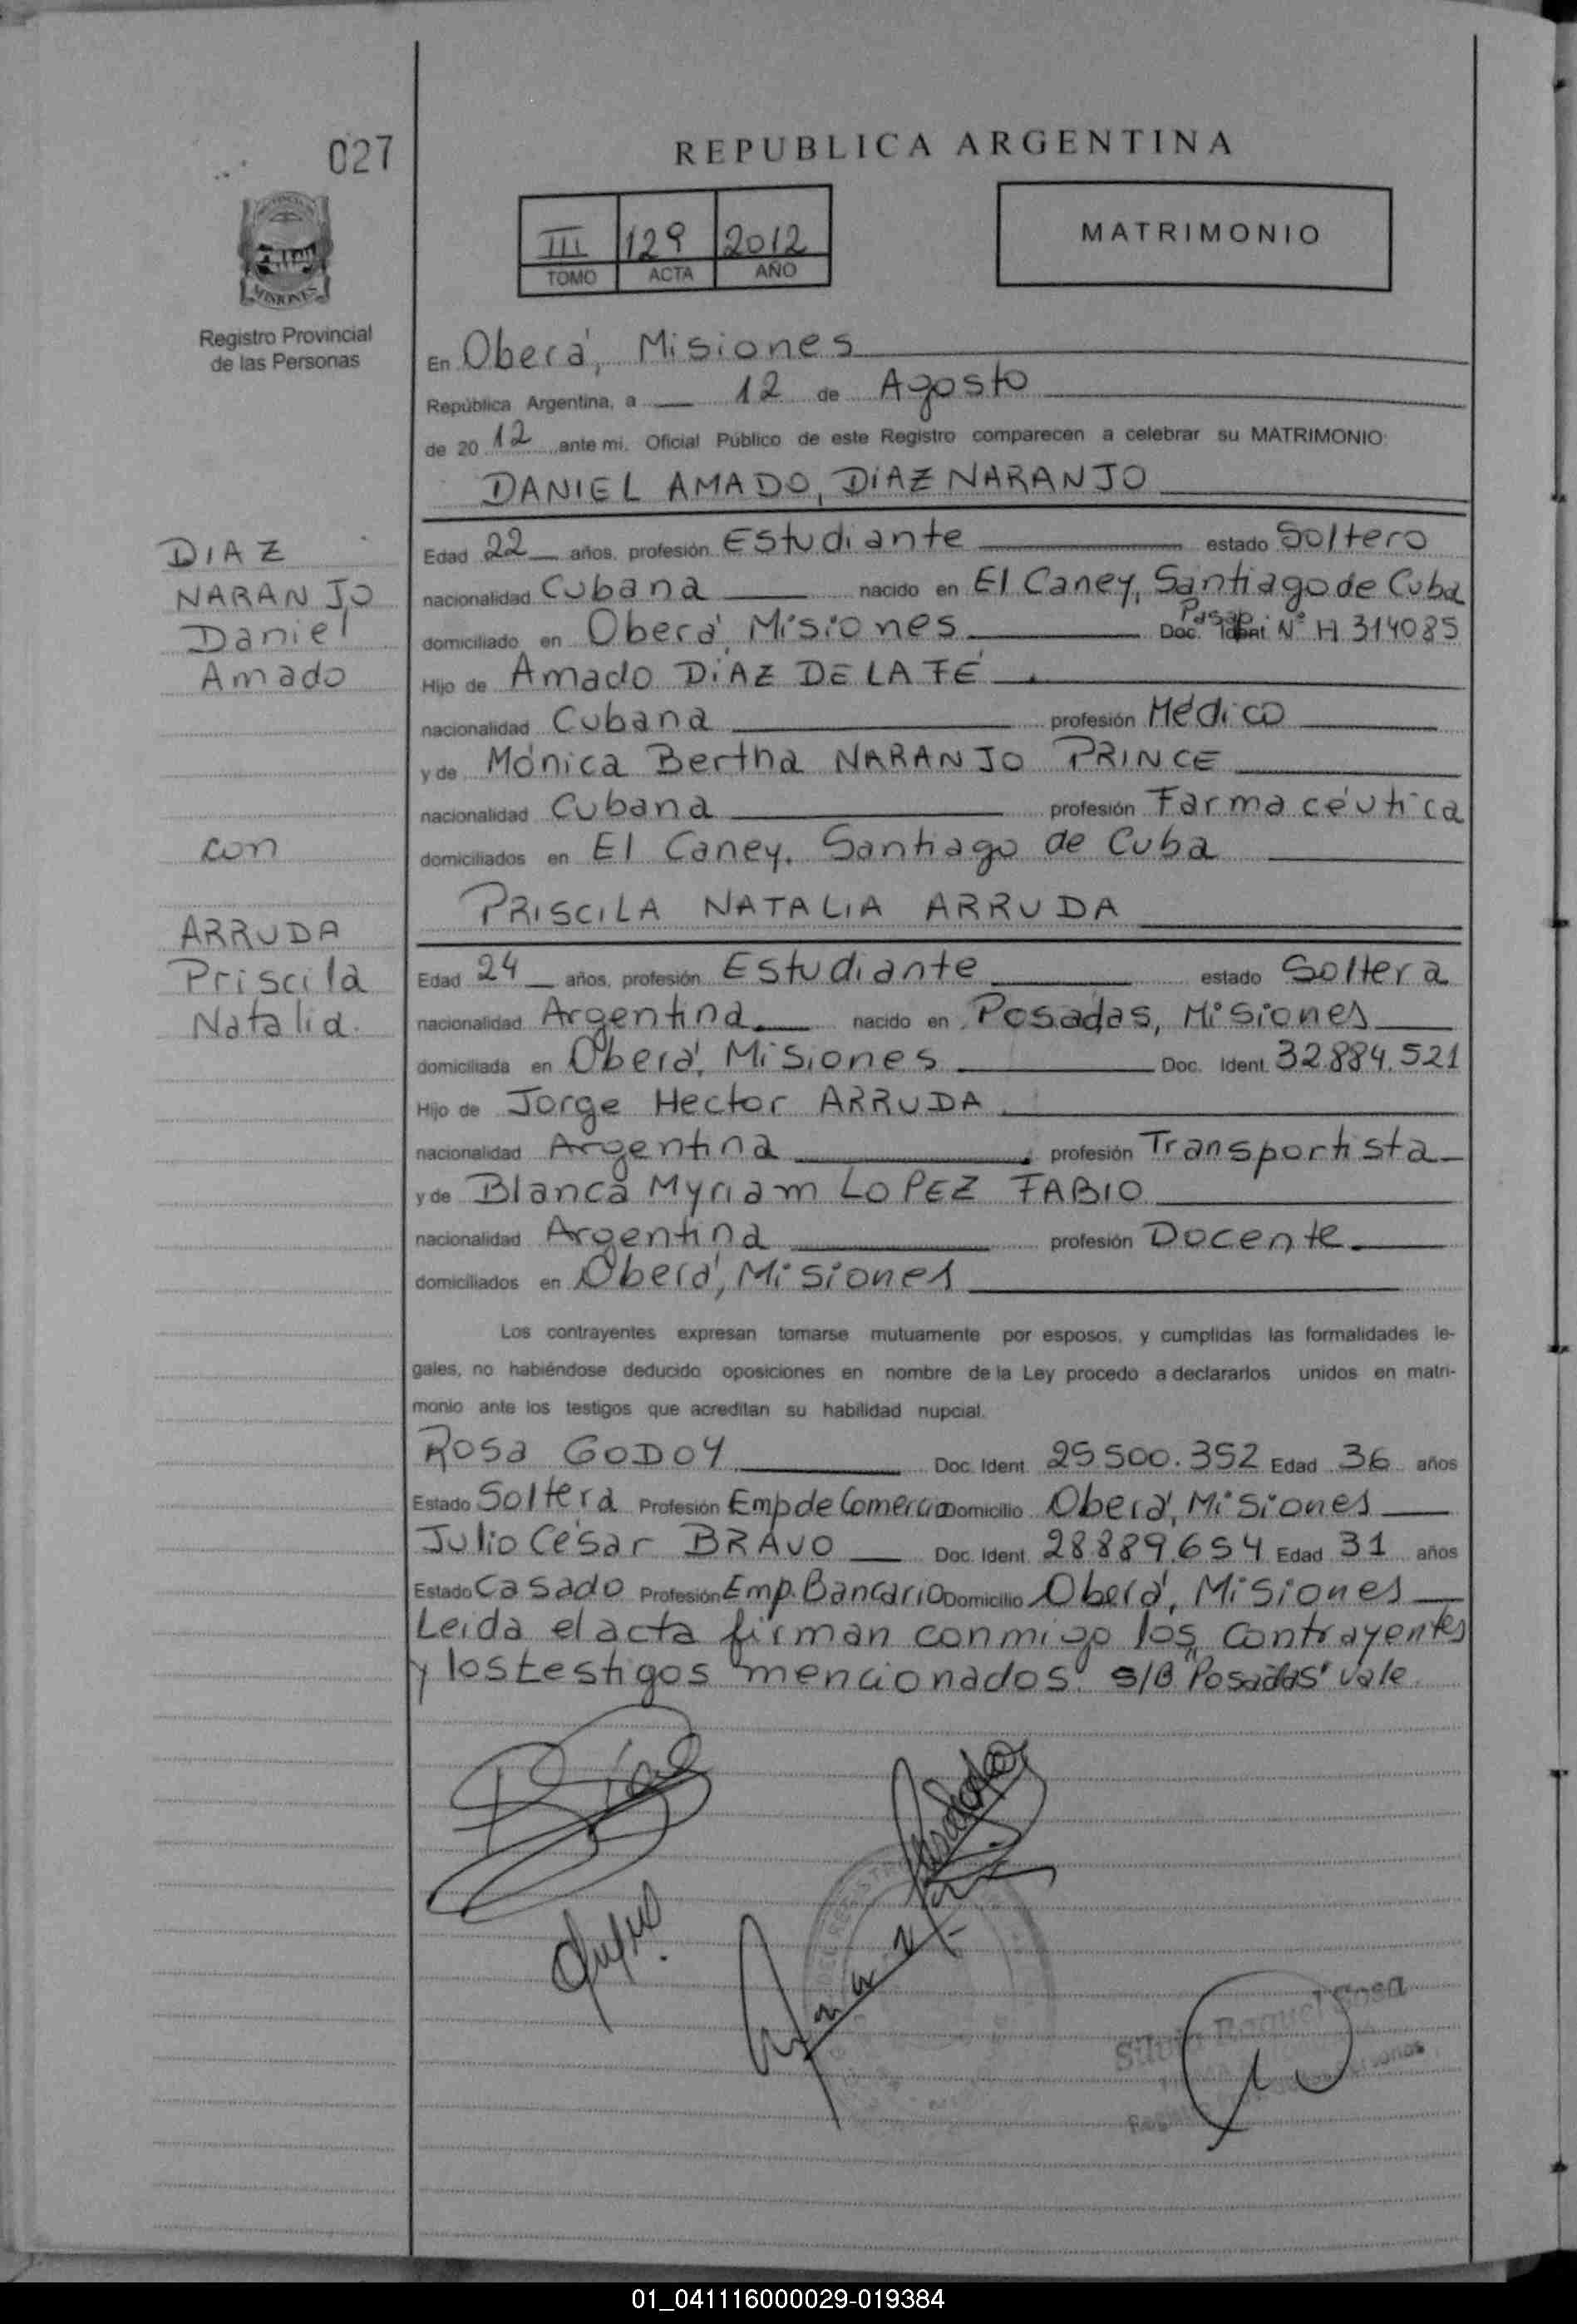 027
REPUBLICA ARGENTINA
III 129 2012
TOMO ACTA AÑO
MATRIMONIO
MISIONES
Registro Provincial
de las Personas
En Oberá, Misiones
República Argentina, a 12 de Agosto
de 2012 ante mi, Oficial Público de este Registro comparecen a celebrar su MATRIMONIO:
DANIEL AMADO, DíAZ NARANJO
DIAZ
NARANJO
Daniel
Amado
con
ARRUDA
Priscila
Natalia.
Edad 22 años, profesión Estudiante estado Soltero
nacionalidad Cubana nacido en El Caney, Santiago de Cuba
domiciliado en Oberá, Misiones Doc. Ident Pasap. Nº H 314085
Hijo de Amado DíAZ DE LA FÉ
nacionalidad Cubana profesión Médico
y de Mónica Bertha NARANJO PRINCE
nacionalidad Cubana profesión Farmacéutica
domiciliados en El Caney, Santiago de Cuba
PRISCILA NATALIA ARRUDA
Edad 24 años, profesión Estudiante estado Soltera
nacionalidad Argentina nacido en Posadas, Misiones
domiciliada en Oberá, Misiones Doc. Ident. 32.884.521
Hijo de Jorge Hector ARRUDA
nacionalidad Argentina profesión Transportista
y de Blanca Myriam LOPEZ FABIO
nacionalidad Argentina profesión Docente
domiciliados en Oberá, Misiones
Los contrayentes expresan tomarse mutuamente por esposos, y cumplidas las formalidades le-
gales, no habiéndose deducido oposiciones en nombre de la Ley procedo a declararlos unidos en matri-
monio ante los testigos que acreditan su habilidad nupcial.
Rosa GODOY Doc. Ident. 25.500.352 Edad 36 años
Estado Soltera Profesión Emp de Comercio Domicilio Oberá, Misiones
Julio César BRAVO Doc. Ident. 28.889.654 Edad 31 años
Estado Casado Profesión Emp. Bancario Domicilio Oberá, Misiones
Leida el acta firman conmigo los contrayentes
y los testigos mencionados. S/B "Posadas" vale.
Silvia Raquel Sosa
01_041116000029-019384